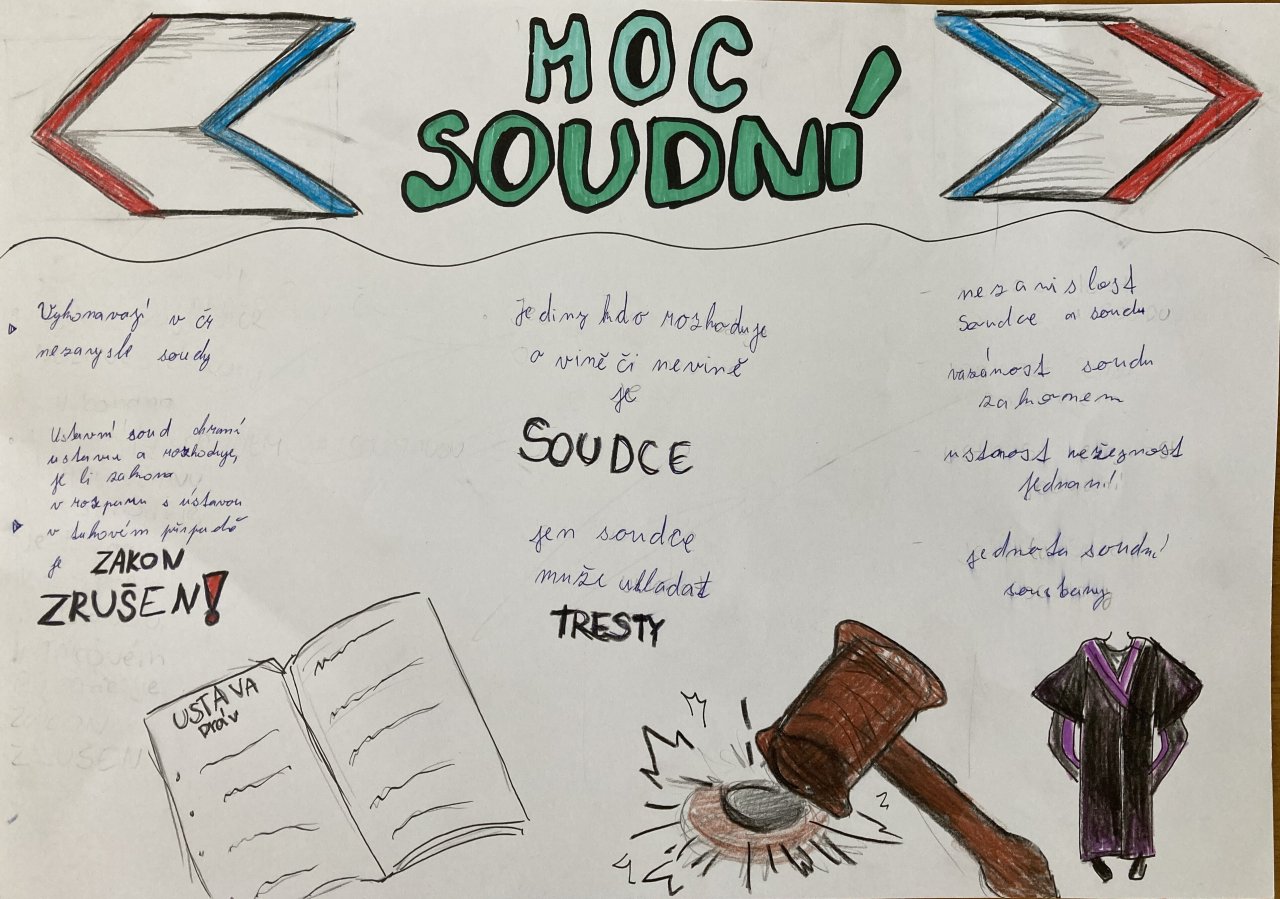 MOC
SOUDNÍ
Vykonavají v čr
nezavysle soudy
Ustavní soud chraní
ustavu a rozhoduje,
je li zakona
v rozporu s ústavou
v takovém připadě
je ZAKON
ZRUŠEN!
Jediny kdo rozhoduje
o vině či nevině
je
SOUDCE
jen soudce
muže ukladat
TRESTY
nezavislost
soudce a soudu
vazánost soudu
zakonem
ustnost neřeznost
jednaní
jednota soudní
soustavy
USTAVA
práv